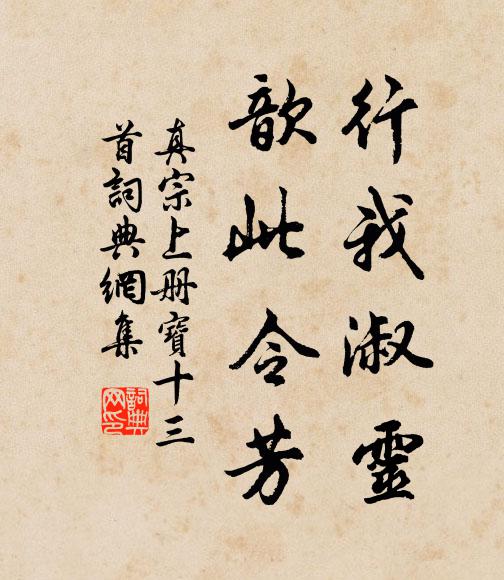 行我淑靈
歆此令芳
真宗上册寶十三
首詞典網集
詞典網印